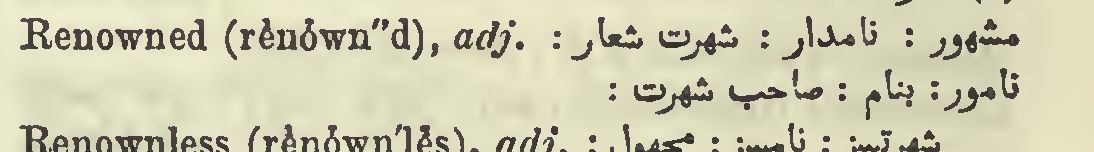 Renowned (rĕnówn"d), adj. مشهور : نامدار : شهرت شعار :
نامور : بنام : صاحب شهرت :
Renownless (rĕnówn'lĕs), adj. شهرتسز : نامسز : مجهول :